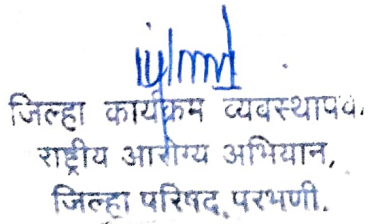 जिल्हा कार्यक्रम व्यवस्थापक
राष्ट्रीय आरोग्य अभियान,
जिल्हा परिषद, परभणी.